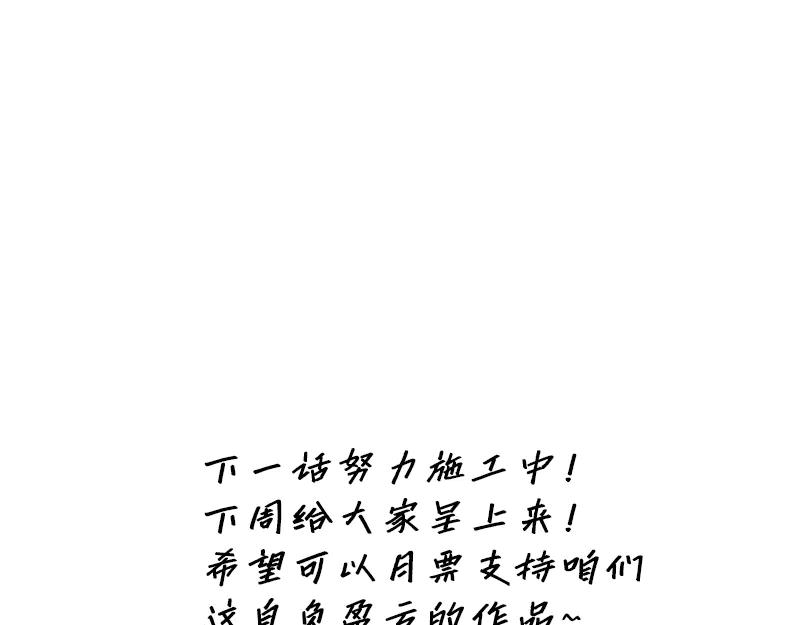 下一话努力施工中!
下周给大家呈上来!
希望可以月票支持咱们
这自负盈亏的作品~